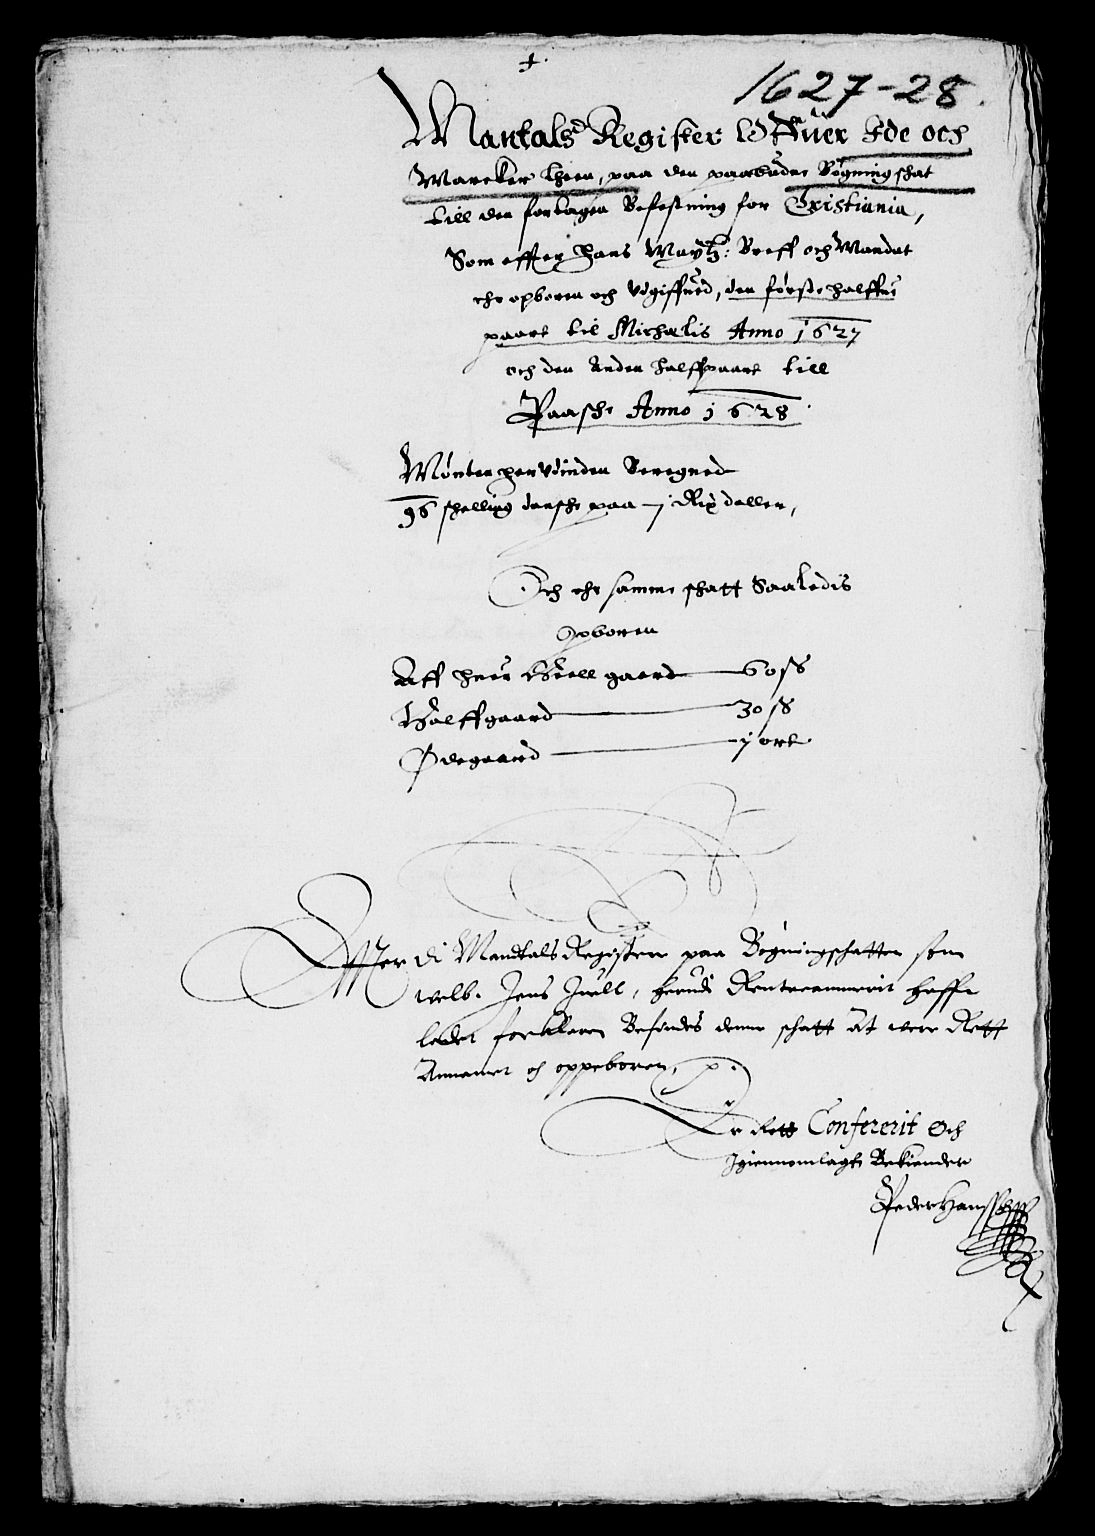 1627-28.
Mantals Register Offuer Ide och
Marcker Lheen, paa den paabudne Bÿgning shat
till den fortagen Befestning for Christiania,
Som effter Hans Maytz: Breff och Mandat
ehr opboren och vdgiffued, den første halffue
paart til Michælis Anno 1627
och den Anden halffpaart till
Paasche Anno 1628
Mønten her vdinden Beregned
96 skelling danske paa j Rix daller,
Och ehr samme skatt Saaledis
Opboren
Aff huer Hiell gaard 60 ss
Halffgaard 30 ss
Ødegaard j ort
Efter di Mandtals Register paa Bÿgningschatten som
welb. Jens Juell, herudi Rentecammerit haffr
ladet forklare Befindes denne schatt at vere Rett
Annamet och oppeboren, p.
Er Rett Confererit Och
Igiennomlagt Bekiender
Peder Hanssen